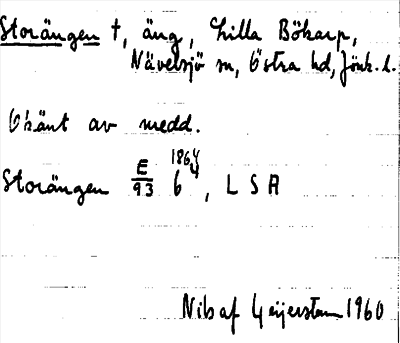 Storängen †, äng, Lilla Bökarp,
Nävelsjö sn, Östra hd, Jönk. l.
Okänt av medd.
1864
Storängen E/93 6, L S A
Nils af Geijerstam 1960